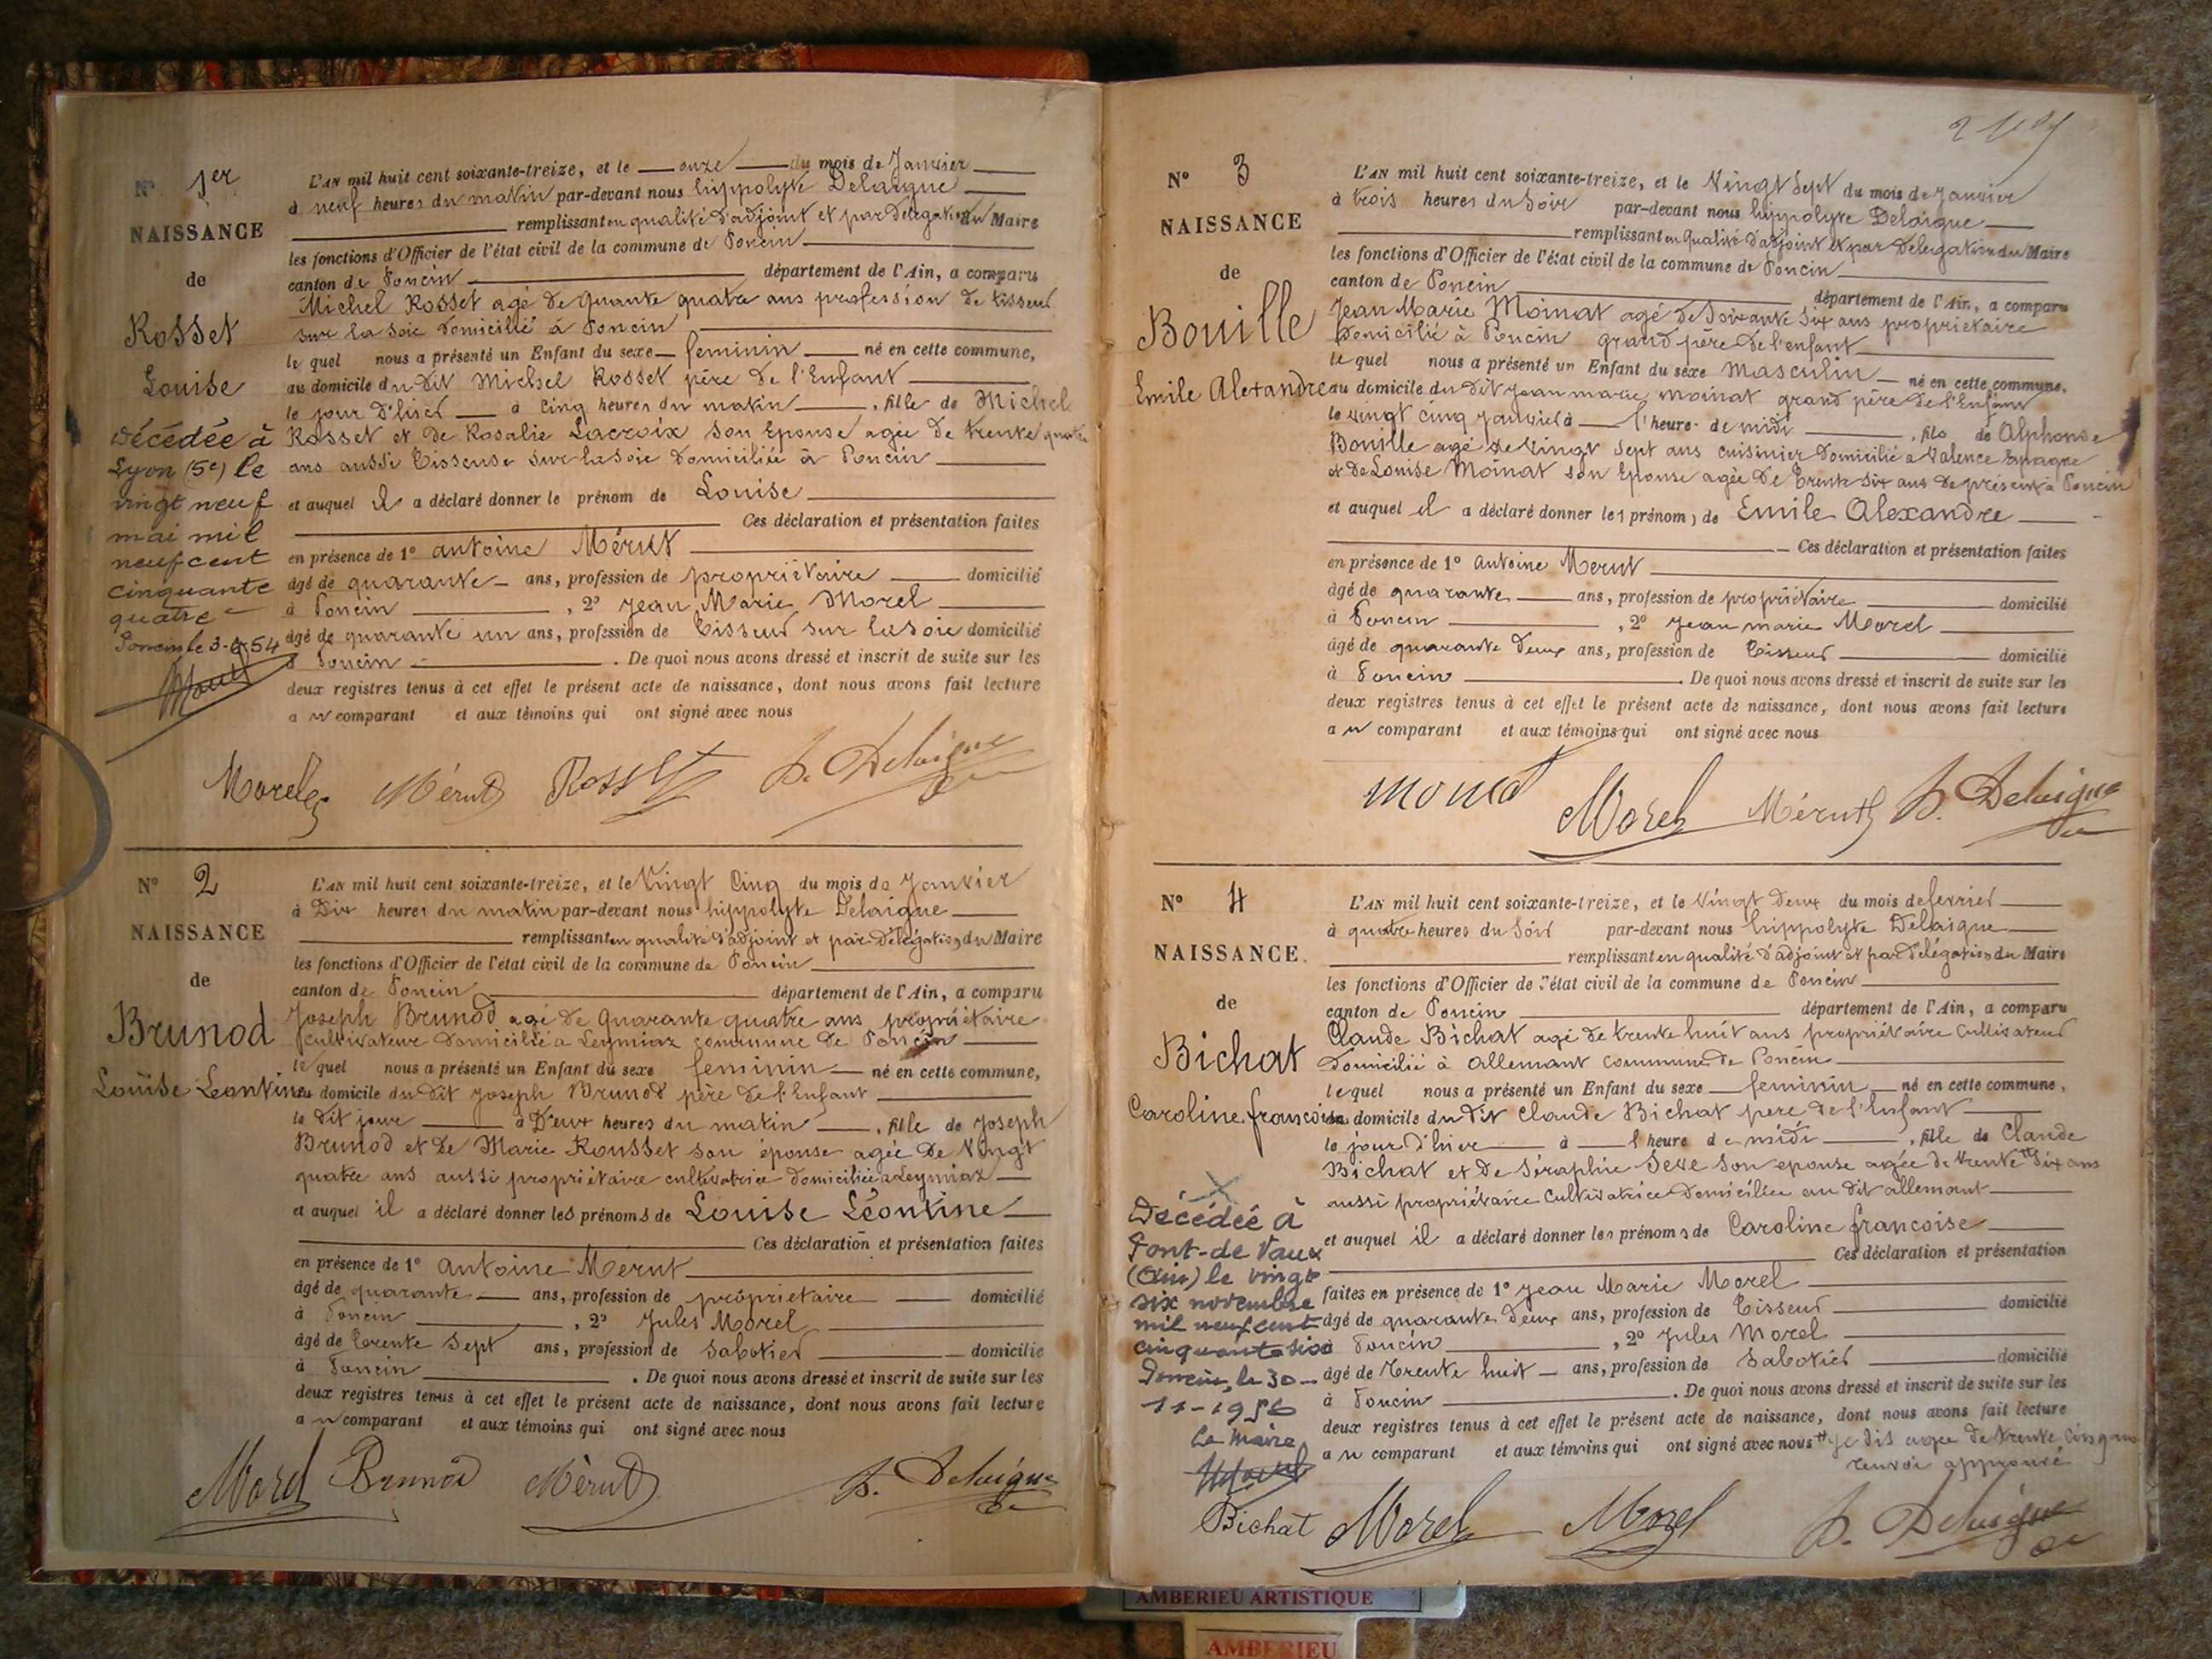 N° 1er
NAISSANCE
de
Rosset
Louise
Décédée à
Lyon (5e) le
vingt neuf
mai mil
neuf cent
cinquante
quatre
Poncin le 3-6-54
L'AN mil huit cent soixante-treize, et le onze du mois de Janvier
à neuf heures du matin par-devant nous hippolyte Delaigue
remplissant en qualité d'adjoint et par délégation du Maire
les fonctions d'Officier de l'état civil de la commune de Poncin
canton de Poncin département de l'Ain, a comparu
Michel Rosset agé de quante quatre ans profession de tisseur
sur la soie domicilié à Poncin
le quel nous a présenté un Enfant du sexe feminin né en cette commune,
au domicile du dit Michel Rosset père de l'Enfant
le jour d'hier à cinq heures du matin, fille de Michel
Rosset et de Rosalie Lacroix son Epouse agée de trente quatre
ans aussi Tisseuse sur la soie domiciliée à Poncin
et auquel il a déclaré donner le prénom de Louise
Ces déclaration et présentation faites
en présence de 1° antoine Mérut
âgé de quarante ans, profession de propriétaire domicilié
à Poncin, 2° Jean Marie Morel
âgé de quarante un ans, profession de Tisseur sur la soie domicilié
à Poncin. De quoi nous avons dressé et inscrit de suite sur les
deux registres tenus à cet effet le présent acte de naissance, dont nous avons fait lecture
au comparant et aux témoins qui ont signé avec nous
Morel Mérut Rosset h. Delaigue
N° 2
NAISSANCE
de
Brunod
Louise Leontine
L'AN mil huit cent soixante-treize, et le Vingt Cinq du mois de Janvier
à Dix heures du matin par-devant nous hippolyte Delaigue
remplissant en qualité d'adjoint et par délégation du Maire
les fonctions d'Officier de l'état civil de la commune de Poncin
canton de Poncin département de l'Ain, a comparu
Joseph Brunod agé de Quarante quatre ans propriétaire
cultivateur domicilié a Leymiaz commune de Poncin
le quel nous a présenté un Enfant du sexe feminin né en cette commune,
au domicile du dit Joseph Brunod père de l'Enfant
le dit jour à Deux heures du matin, fille de Joseph
Brunod et de Marie Rousset son épouse agée de Vingt
quatre ans aussi propriétaire cultivatrice domiciliée a Leymiaz
et auquel il a déclaré donner les prénoms de Louise Léontine
Ces déclaration et présentation faites
en présence de 1° antoine Mérut
âgé de quarante ans, profession de propriétaire domicilié
à Poncin, 2° Jules Morel
âgé de trente sept ans, profession de Sabotier domicilié
à Poncin. De quoi nous avons dressé et inscrit de suite sur les
deux registres tenus à cet effet le présent acte de naissance, dont nous avons fait lecture
au comparant et aux témoins qui ont signé avec nous
Morel Brunod Mérut h. Delaigue
N° 3
NAISSANCE
de
Bouille
Emile Alexandre
L'AN mil huit cent soixante-treize, et le Vingt Sept du mois de Janvier
à trois heures du Soir par-devant nous hippolyte Delaigue
remplissant en qualité d'adjoint et par délégation du Maire
les fonctions d'Officier de l'état civil de la commune de Poncin
canton de Poncin département de l'Ain, a comparu
Jean Marie Moinat agé de Soixante Six ans propriétaire
Domicilié à Poncin grand père de l'enfant
le quel nous a présenté un Enfant du sexe Masculin né en cette commune,
au domicile du dit Jean marie Moinat grand père de l'Enfant
le vingt cinq Janvier à l'heure de midi, fils de Alphonse
Bouille agé de Vingt Sept ans cuisinier Domicilié a Valence Espagne
et de Louise Moinat son Epouse agée de Trente Six ans de présent à Poncin
et auquel il a déclaré donner les prénoms de Emile Alexandre
Ces déclaration et présentation faites
en présence de 1° antoine Merut
âgé de quarante ans, profession de propriétaire domicilié
à Poncin, 2° Jean marie Morel
âgé de quarante Deux ans, profession de Tisseur domicilié
à Poncin. De quoi nous avons dressé et inscrit de suite sur les
deux registres tenus à cet effet le présent acte de naissance, dont nous avons fait lecture
au comparant et aux témoins qui ont signé avec nous
Morel Mérut h. Delaigue
N° 4
NAISSANCE
de
Bichat
Caroline francoise
Décédée à
Pont-de Vaux
(Ain) le vingt
six novembre
mil neuf cent
cinquante six
Poncin, le 30-
11-1956
Le Maire
L'AN mil huit cent soixante-treize, et le Vingt Deux du mois de fevrier
à quatre heures du Soir par-devant nous hippolyte Delaigue
remplissant en qualité d'adjoint et par délégation du Maire
les fonctions d'Officier de l'état civil de la commune de Poncin
canton de Poncin département de l'Ain, a comparu
Claude Bichat agé de trente huit ans propriétaire Cultivateur
Domicilié à allemant commune de Poncin
le quel nous a présenté un Enfant du sexe feminin né en cette commune,
au domicile du dit Claude Bichat père de l'Enfant
le jour d'hier à l'heure de midi, fille de Claude
Bichat et de Séraphie Seve son epouse agée de trente Six ans
aussi propriétaire Cultivatrice domiciliée au dit allemant
et auquel il a déclaré donner les prénoms de Caroline francoise
Ces déclaration et présentation
faites en présence de 1° Jean Marie Morel
âgé de quarante Deux ans, profession de Tisseur domicilié
à Poncin, 2° Jules Morel
âgé de Trente huit ans, profession de Sabotier domicilié
à Poncin. De quoi nous avons dressé et inscrit de suite sur les
deux registres tenus à cet effet le présent acte de naissance, dont nous avons fait lecture
au comparant et aux témoins qui ont signé avec nous # Je dis agée de trente Cinq ans
renvoi approuvé
Bichat Morel Morel h. Delaigue
AMBERIEU ARTISTIQUE
AMBERIEU